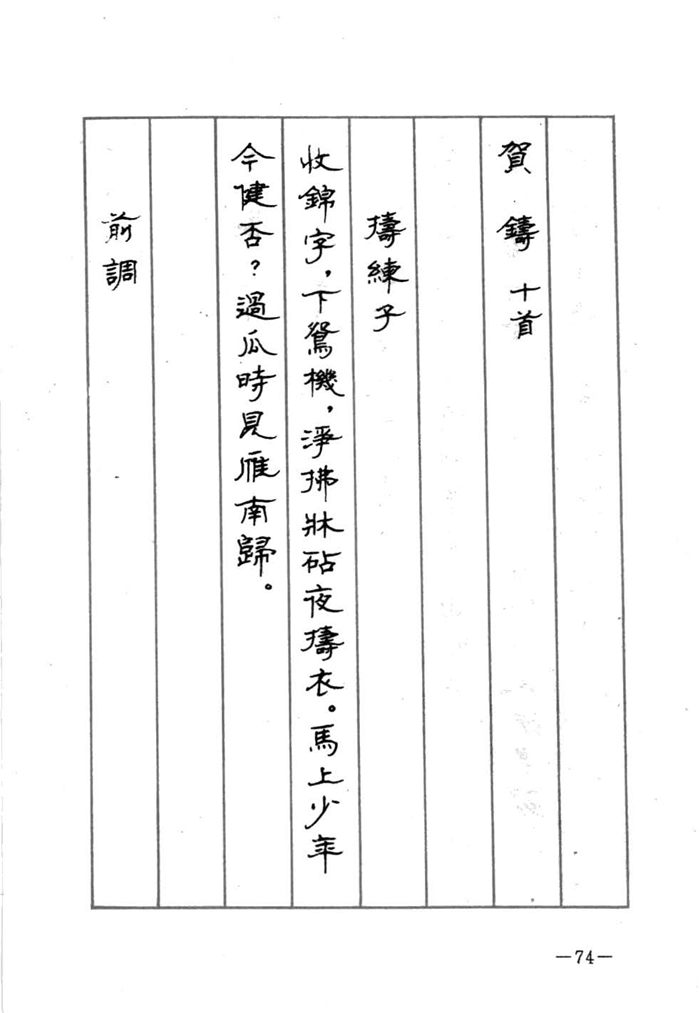 賀鑄 十首
擣練子
收錦字，下鴛機，淨拂牀砧夜擣衣。馬上少年
今健否？過瓜時見雁南歸。
前調
—74—